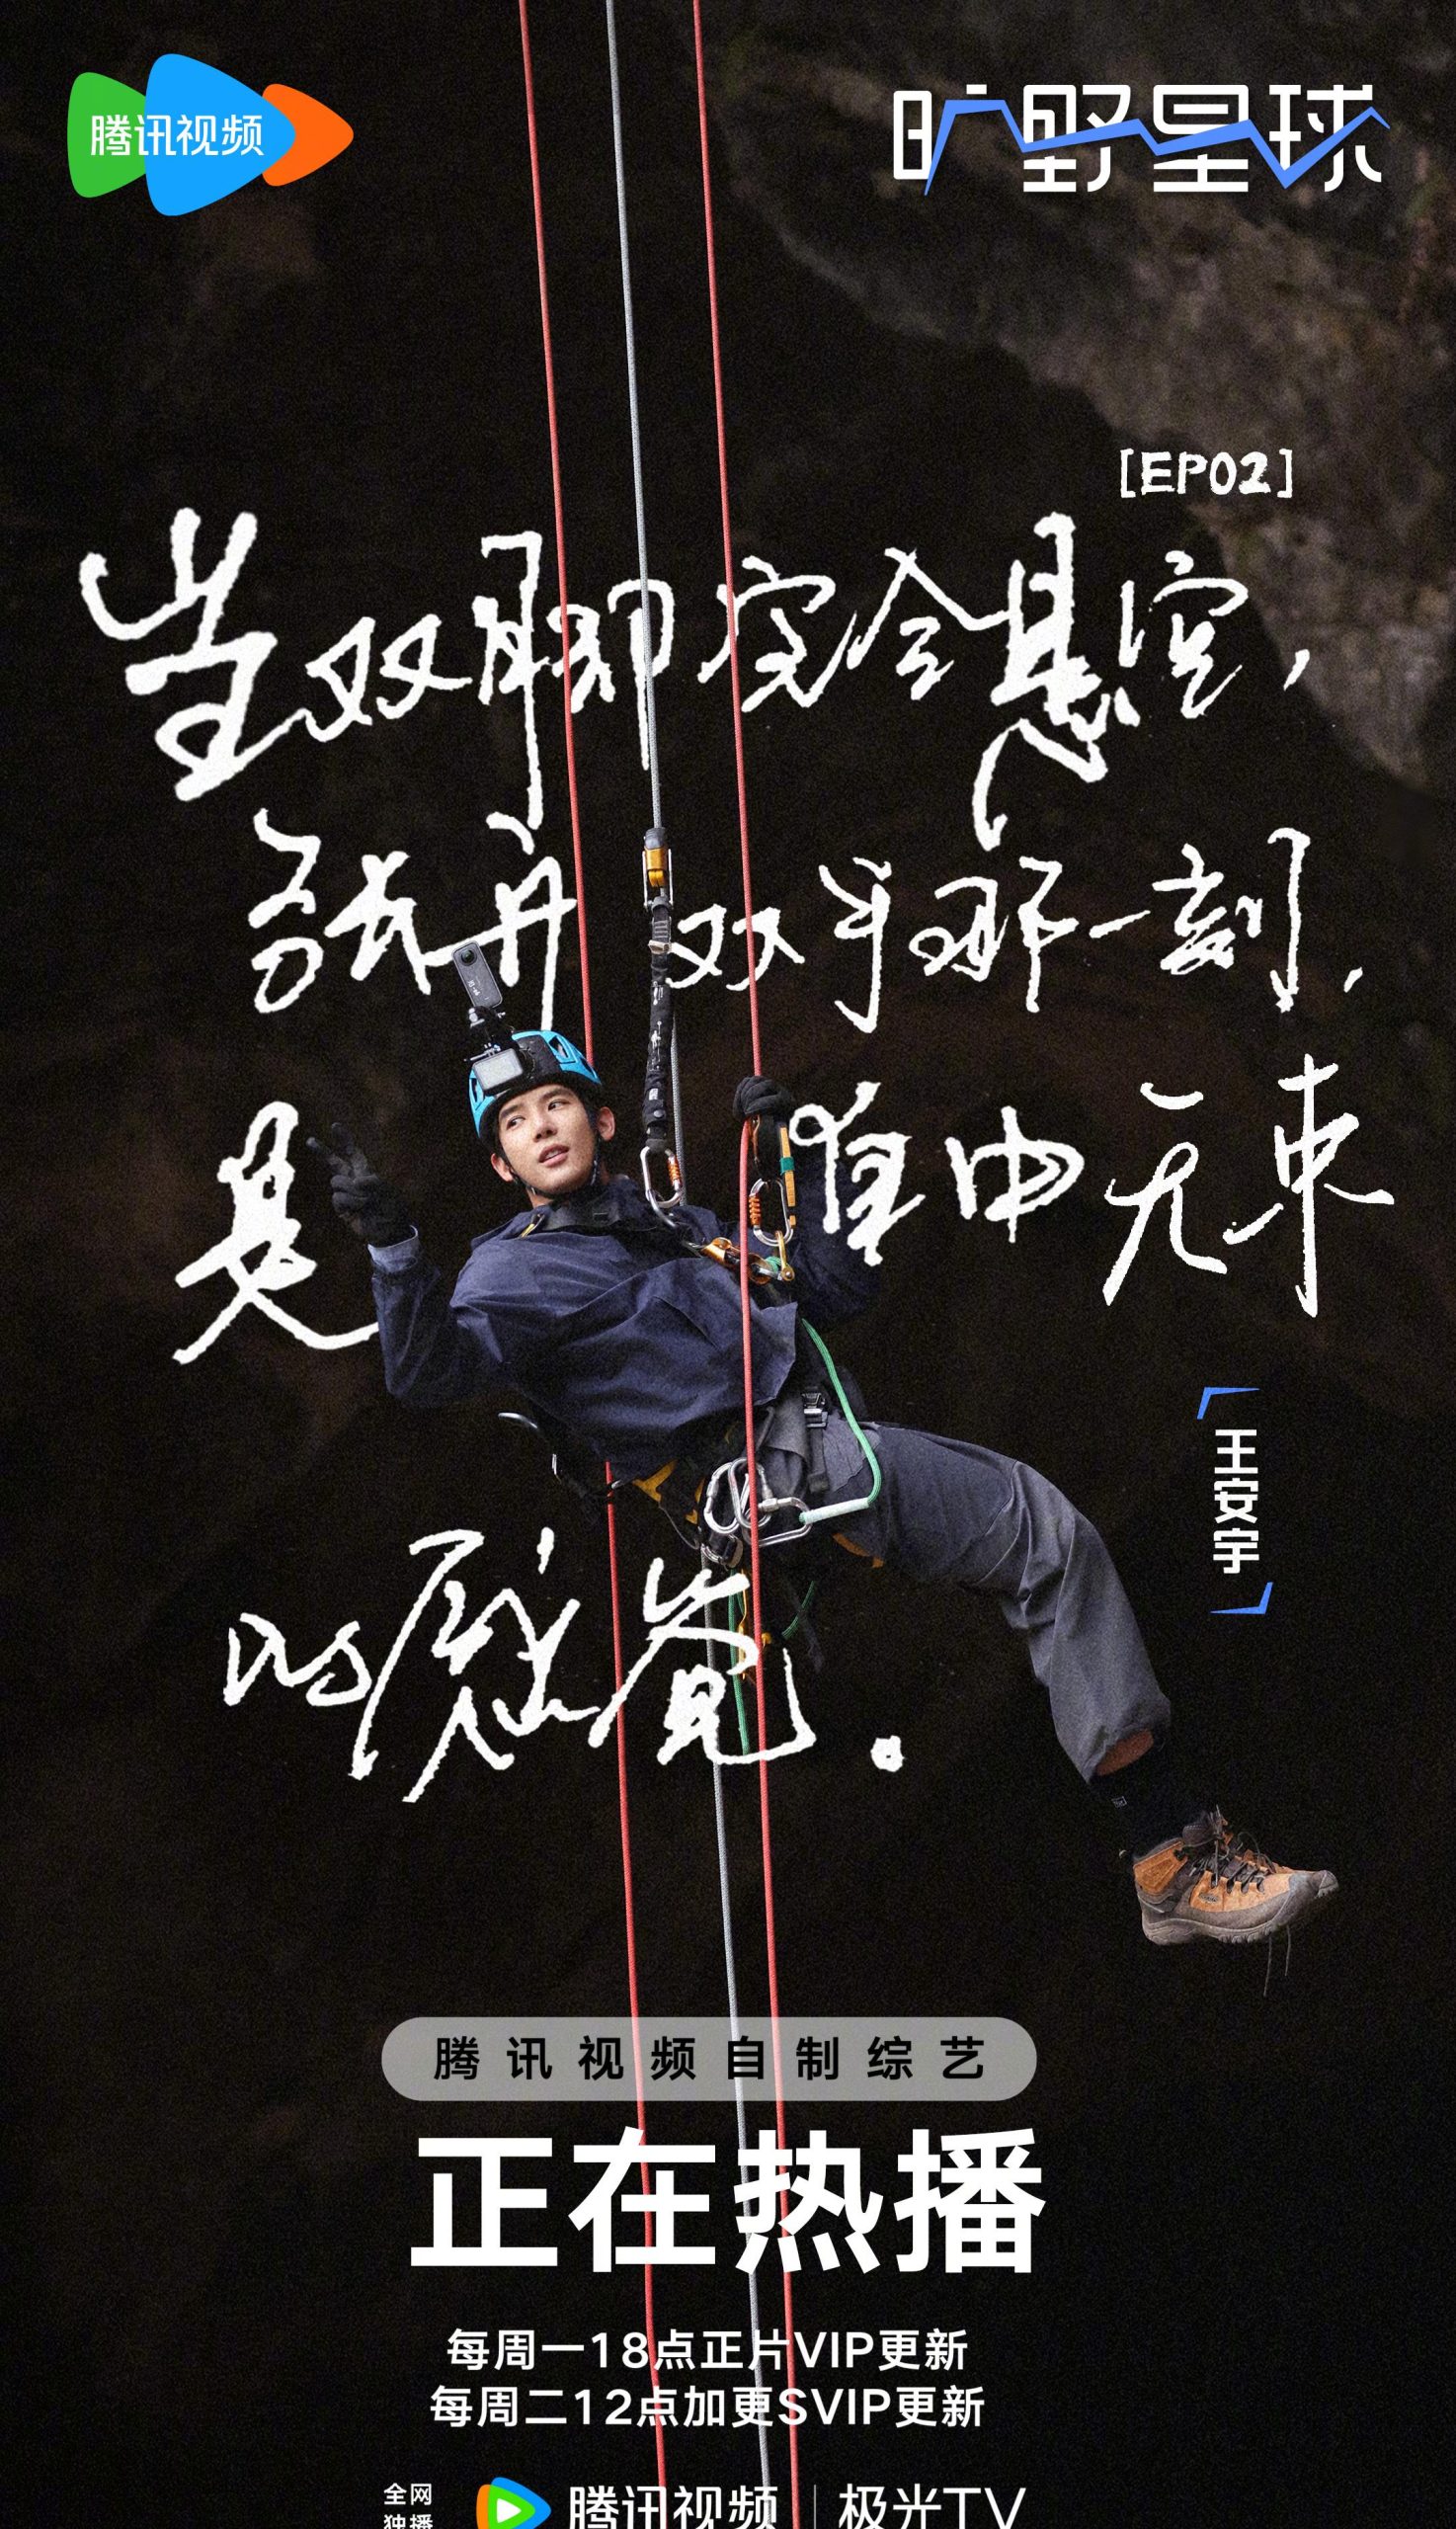 腾讯视频
旷野星球
[EP02]
当双脚完全悬空,
张开双手那一刻,
是自由无束
的感觉.
王安宇
腾讯视频自制综艺
正在热播
每周一18点正片VIP更新
每周二12点加更SVIP更新
全网
独播
腾讯视频 | 极光TV